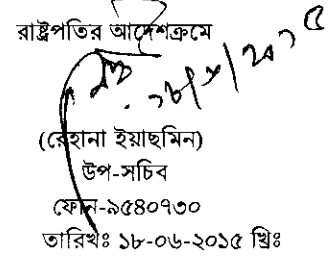 রাষ্ট্রপতির আদেশক্রমে
১৮/৬/২০১৫
(রেহানা ইয়াছমিন)
উপ-সচিব
ফোন-৯৫৪০৭৩০
তারিখঃ ১৮-০৬-২০১৫ খ্রিঃ